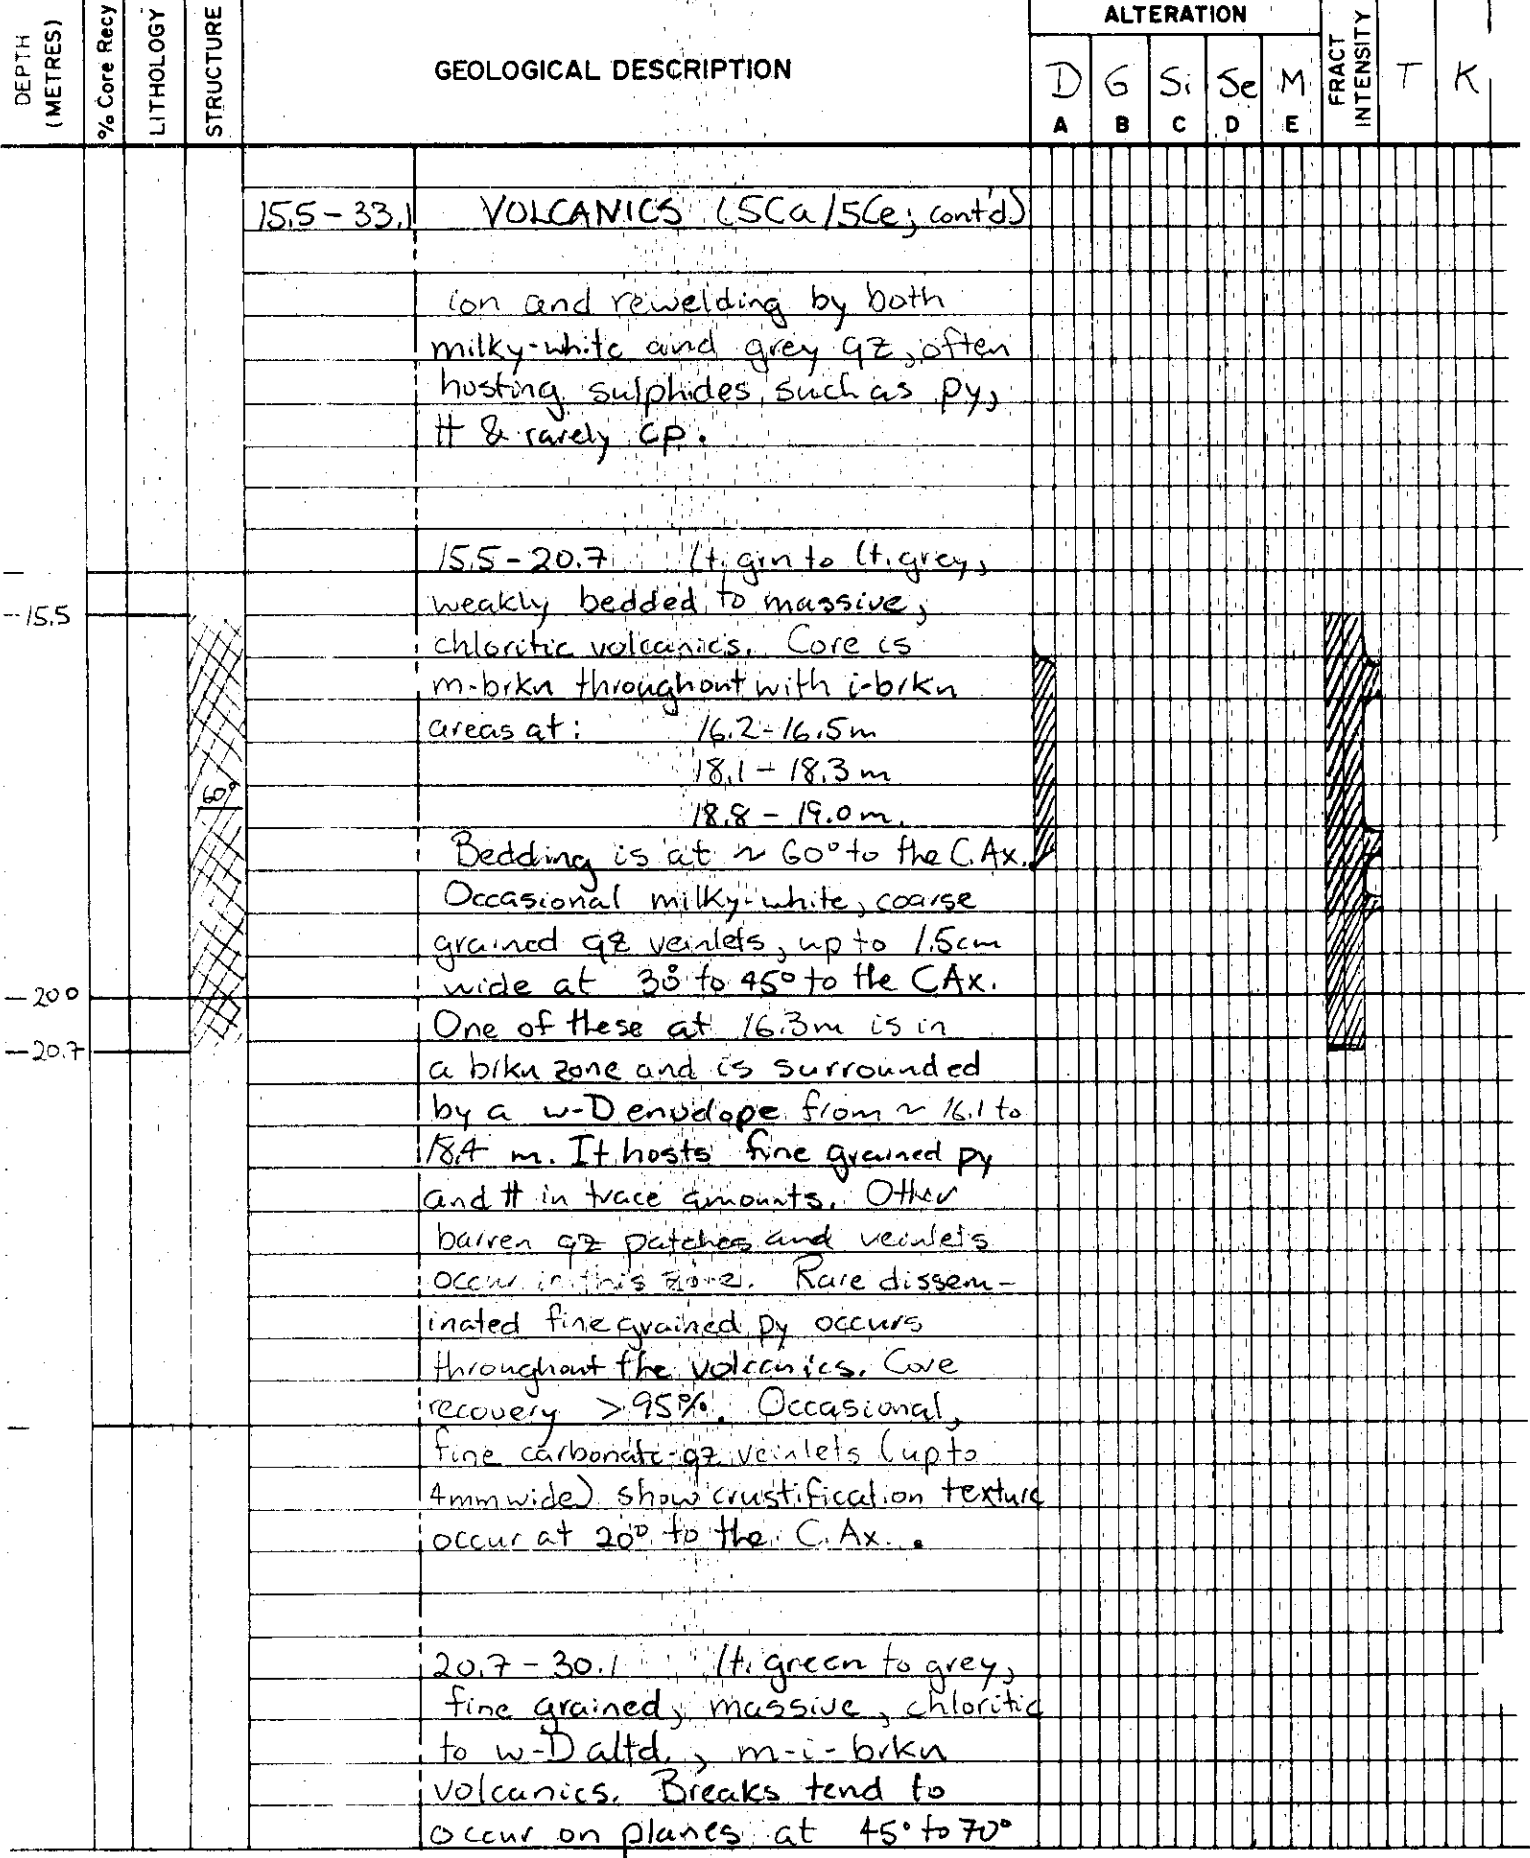 DEPTH (METRES)
% Core Recy
LITHOLOGY
STRUCTURE
GEOLOGICAL DESCRIPTION
ALTERATION
D G Si Se M
A B C D E
FRACT INTENSITY
T K
15.5-33.1 VOLCANICS (5Ca/5Ce; cont'd)
ion and rewelding by both
milky-white and grey qz, often
hosting sulphides such as py,
tt & rarely cp.
15.5-20.7 lt. grn to lt. grey,
--15.5
weakly bedded to massive,
chloritic volcanics. Core is
m-brkn throughout with i-brkn
areas at: 16.2-16.5m
18.1-18.3m
60°
18.8-19.0m.
Bedding is at ~ 60° to the C.Ax.
Occasional milky-white, coarse
grained qz veinlets, up to 1.5cm
wide at 30° to 45° to the CAx.
--20.0
One of these at 16.3m is in
--20.7
a brkn zone and is surrounded
by a w-D envelope from ~ 16.1 to
18.4 m. It hosts fine grained py
and tt in trace amounts. Other
barren qz patches and veinlets
occur in this zone. Rare dissem-
inated fine grained py occurs
throughout the volcanics. Core
recovery >95%. Occasional,
fine carbonate-qz veinlets (up to
4mm wide) show crustification texture
occur at 20° to the C.Ax..
20.7-30.1 lt. green to grey,
fine grained, massive, chloritic
to w-D altd., m-i-brkn
volcanics. Breaks tend to
occur on planes at 45° to 70°